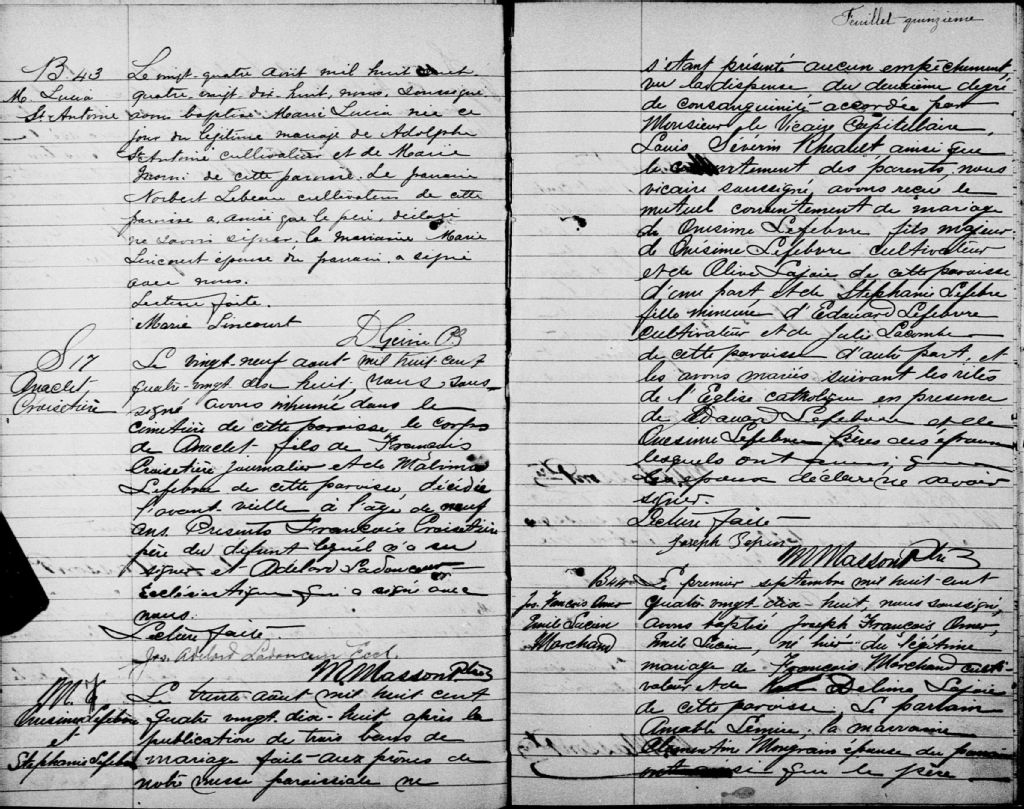 B. 43
M. Lucia
St. Antoine
Le vingt-quatre août mil huit cent
quatre-vingt-dix-huit, nous, soussigné
avons baptisé Marie Lucia née ce
jour du légitime mariage de Adolphe
St. Antoine cultivateur et de Marie
de cette paroisse. Le parrain
Norbert Lebeau cultivateur de cette
paroisse a, ainsi que le père, déclaré
ne savoir signer. la marraine Marie
Lincourt épouse du parrain a signé
avec nous.
Lecture faite.
Marie Lincourt
S 17
Anaclet
Craisetière
Le vingt-neuf aout mil huit cent
quatre-vingt dix huit, nous, sous-
signé avons inhumé dans le
cimetière de cette paroisse, le corps
de Anaclet fils de François
Craisetière journalier et de Malvina
Lefebvre de cette paroisse, décédée
l'avant veille à l'âge de neuf
ans. Présents François Craisetière
père du défunt lequel n'a su
signer et Adelard Ladouceur
Ecclésiastique qui a signé avec
nous.
Lecture faite.
Jos. Adelard Ladouceur Eccl.
M Masson Ptre
M. 7
Onesime Lefebvre
et
Stephanie Lefebvre
Le trente août mil huit cent
quatre vingt dix-huit, après la
publication de trois bans de
mariage faite aux prônes de
notre messe paroissiale ne
Feuillet quinzième
s'étant présenté aucun empêchement,
vu la dispense, du deuxième degré
de consanguinité accordée par
Monsieur le Vicaire Capitulaire,
Louis Severin Rheault ainsi que
le consentement des parents, nous
vicaire soussigné, avons reçu le
mutuel consentement de mariage
de Onesime Lefebvre fils majeur
de Onesime Lefebvre cultivateur
et de Olive Lajoie de cette paroisse
d'une part et de Stephanie Lefebvre
fille mineure d'Edouard Lefebvre
cultivateur et de Julie Lacombe
de cette paroisse d'autre part, et
les avons mariés suivant les rites
de l'Eglise catholique en presence
de Edouard Lefebvre et de
Onesime Lefebvre frères des époux
lesquels ont
Les époux déclaré ne savoir
signer.
Lecture faite
Joseph Pepin
M Masson Ptre
B 44
Jos. François Omer
Emile Lucien
Marchand
Le premier septembre mil huit cent
quatre vingt-dix-huit, nous soussigné,
avons baptisé Joseph François Omer,
Emile Lucien, né hier du légitime
mariage de François Marchand culti-
vateur et de Delima Lajoie
de cette paroisse. Le parrain
Amable Lemire; la marraine
Clementine Mongrain épouse du parrain
ainsi que le père